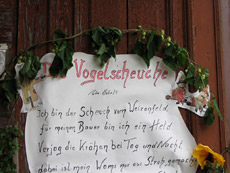 Die Vogelscheuche
Ich bin der Scheuch vom Weisenfeld,
für meinen Bauer bin ich ein Held
Verjag die Krähen bei Tag und Nacht
dabei ist mein Wams nur aus Stroh gemacht